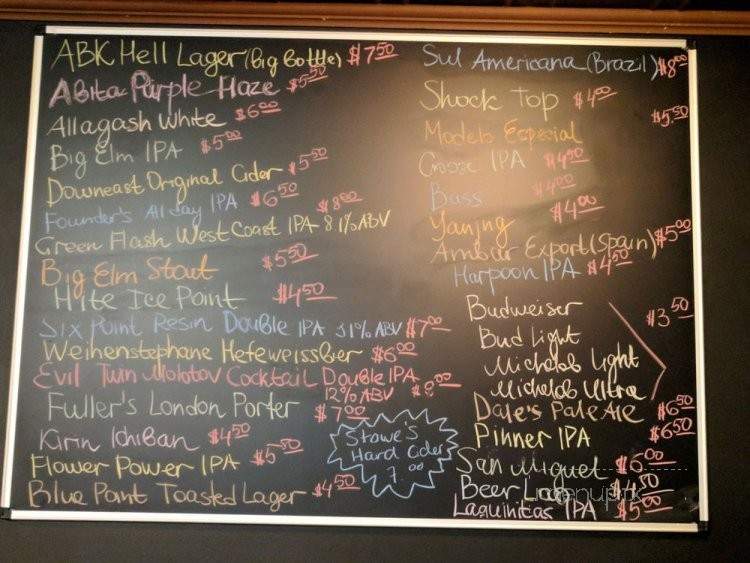 ABK Hell Lager (Big Bottle) $7.50
Abita Purple Haze $5.50
Allagash White $6.00
Big Elm IPA $5.00
Downeast Original Cider $5.50
Founder's All day IPA $6.50
Green Flash West Coast IPA 8.1% ABV $8.00
Big Elm Stout $5.50
Hite Ice Point $4.50
Six Point Resin Double IPA ABV $7.00
Weihenstephane Hefeweissbier $6.00
Evil Twin Molotov Cocktail Double IPA
12% ABV $8.00
Fuller's London Porter $7.00
Kirin Ichiban $4.50
Flower Power IPA $5.50
Blue Point Toasted Lager $4.50
Stowe's
Hard Cider
7.00
Sul Americana (Brazil) $8.00
Shock Top $4.00
Modelo Especial $5.50
Goose IPA $4.50
Bass $4.00
Yanjng $4.00
Ambar Export (Spain) $5.00
Harpoon IPA $4.50
Budweiser
Bud light
Michelob light
Michelob Ultra
$3.50
Dale's Pale Ale $6.50
Pinner IPA $6.50
San Miguel $6.00
Beer $4.50
Laquinitas IPA $5.00